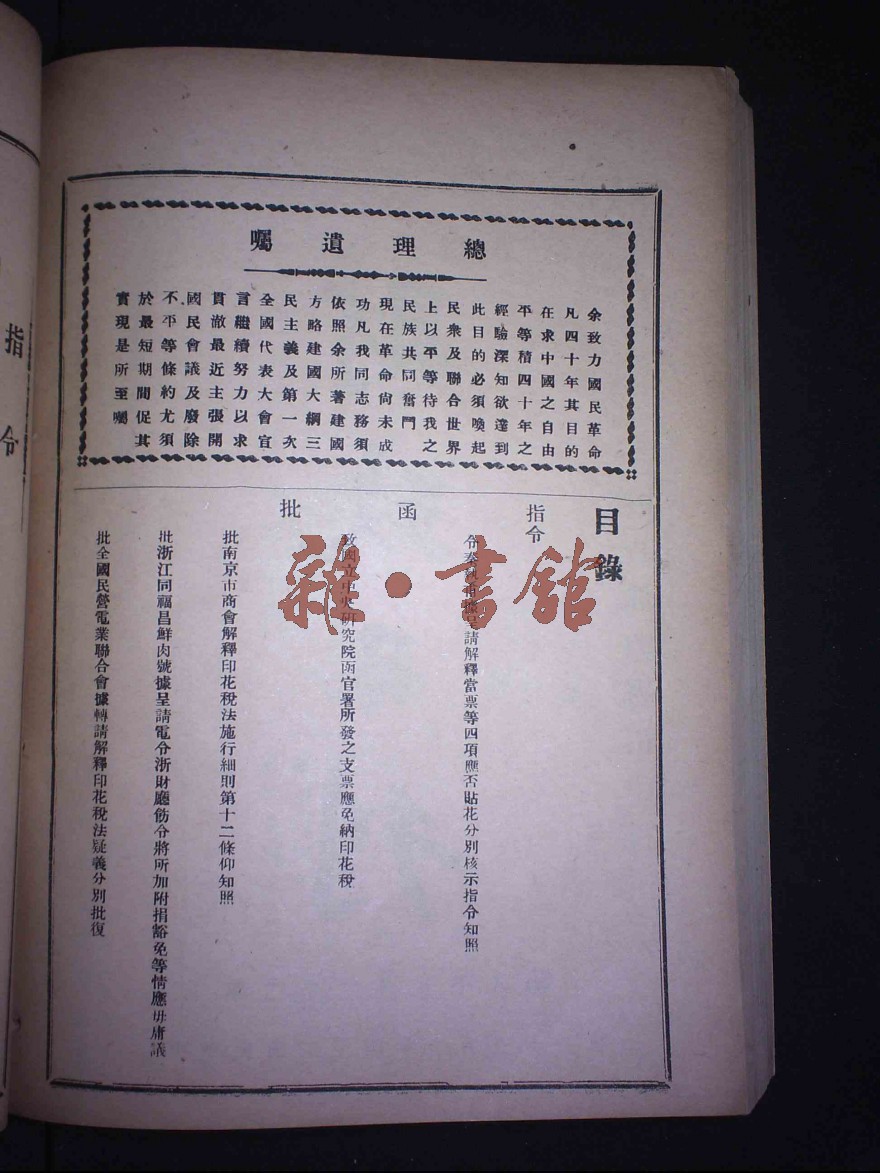 指令
總理遺囑
余致力國民革命
凡四十年其目的
在求中國之自由
平等積四十年之
經驗深知欲達到
此目的必須喚起
民衆及聯合世界
上以平等待我之
民族共同奮鬥
現在革命尙未成
功凡我同志務須
依照余所著建國
方略建國大綱三
民主義及第一次
全國代表大會宣
言繼續努力以求
貫澈最近主張開
國民會議及廢除
不平等條約尤須
於最短期間促其
實現是所至囑
目錄
指令
令秦 據呈請解釋當票等四項應否貼花分別核示指令知照
函
致國立中央研究院函官署所發之支票應免納印花稅
批
批南京市商會解釋印花稅法施行細則第十二條仰知照
批浙江同福昌鮮肉號據呈請電令浙財廳飭令將所加附捐豁免等情應毋庸議
批全國民營電業聯合會據轉請解釋印花稅法疑義分別批復
雜·書館